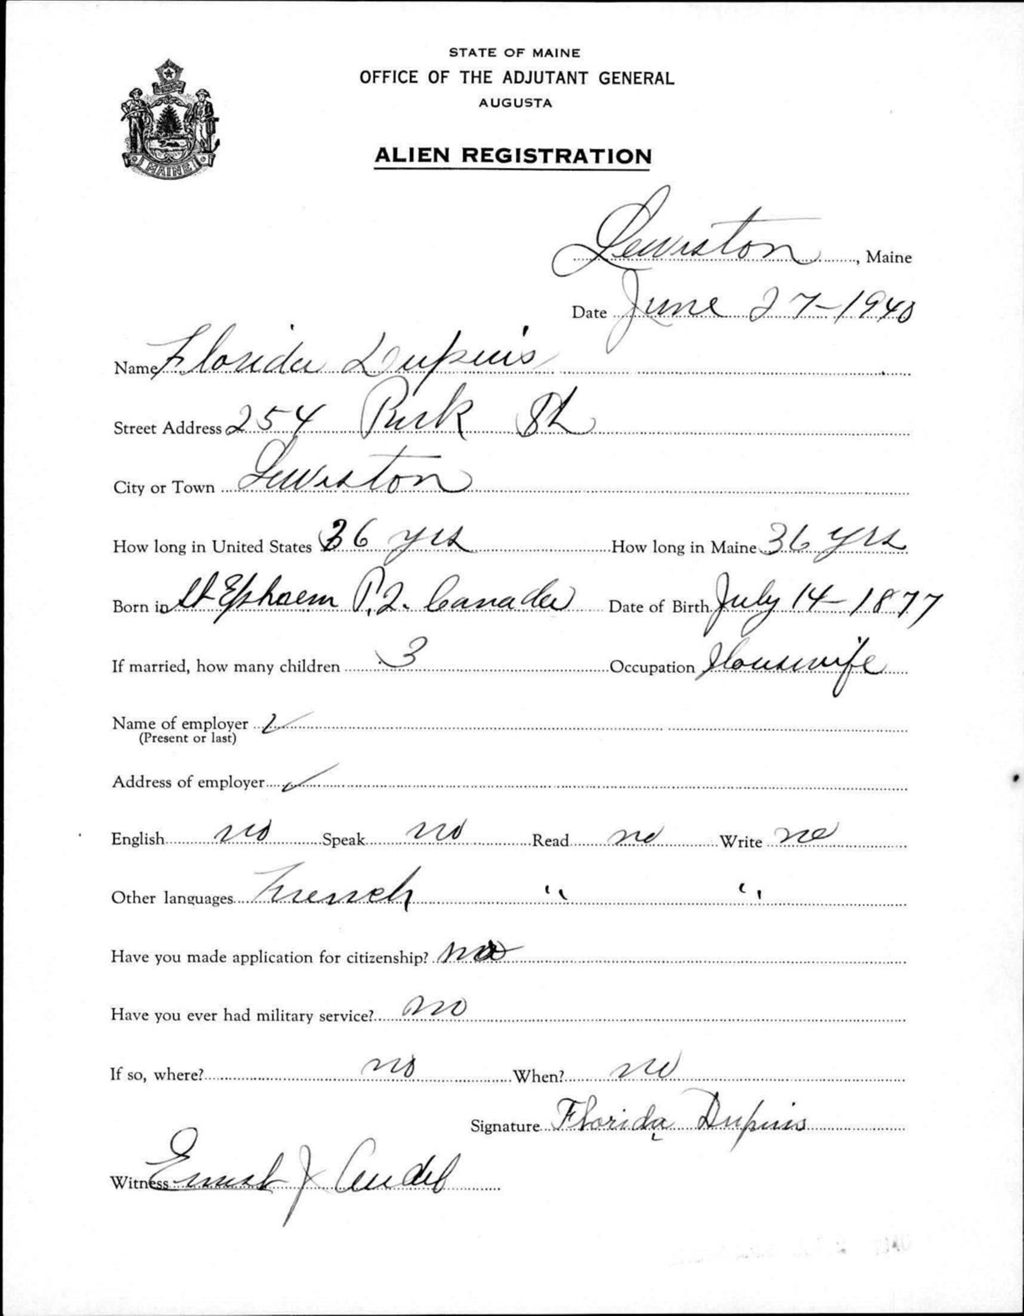 STATE OF MAINE
OFFICE OF THE ADJUTANT GENERAL
AUGUSTA
ALIEN REGISTRATION
MAINE
Lewiston, Maine
Date June 27-1940
Name Florida Dupuis
Street Address 254 Park St
City or Town Lewiston
How long in United States 36 yrs How long in Maine 36 yrs
Born in St Ephraem P.Q. Canada Date of Birth July 14-1877
If married, how many children 3 Occupation Housewife
Name of employer ✓
(Present or last)
Address of employer ✓
English no Speak no Read no Write no
Other languages French " "
Have you made application for citizenship? no
Have you ever had military service? no
If so, where? no When? no
Signature Florida Dupuis
Witness Ernest J